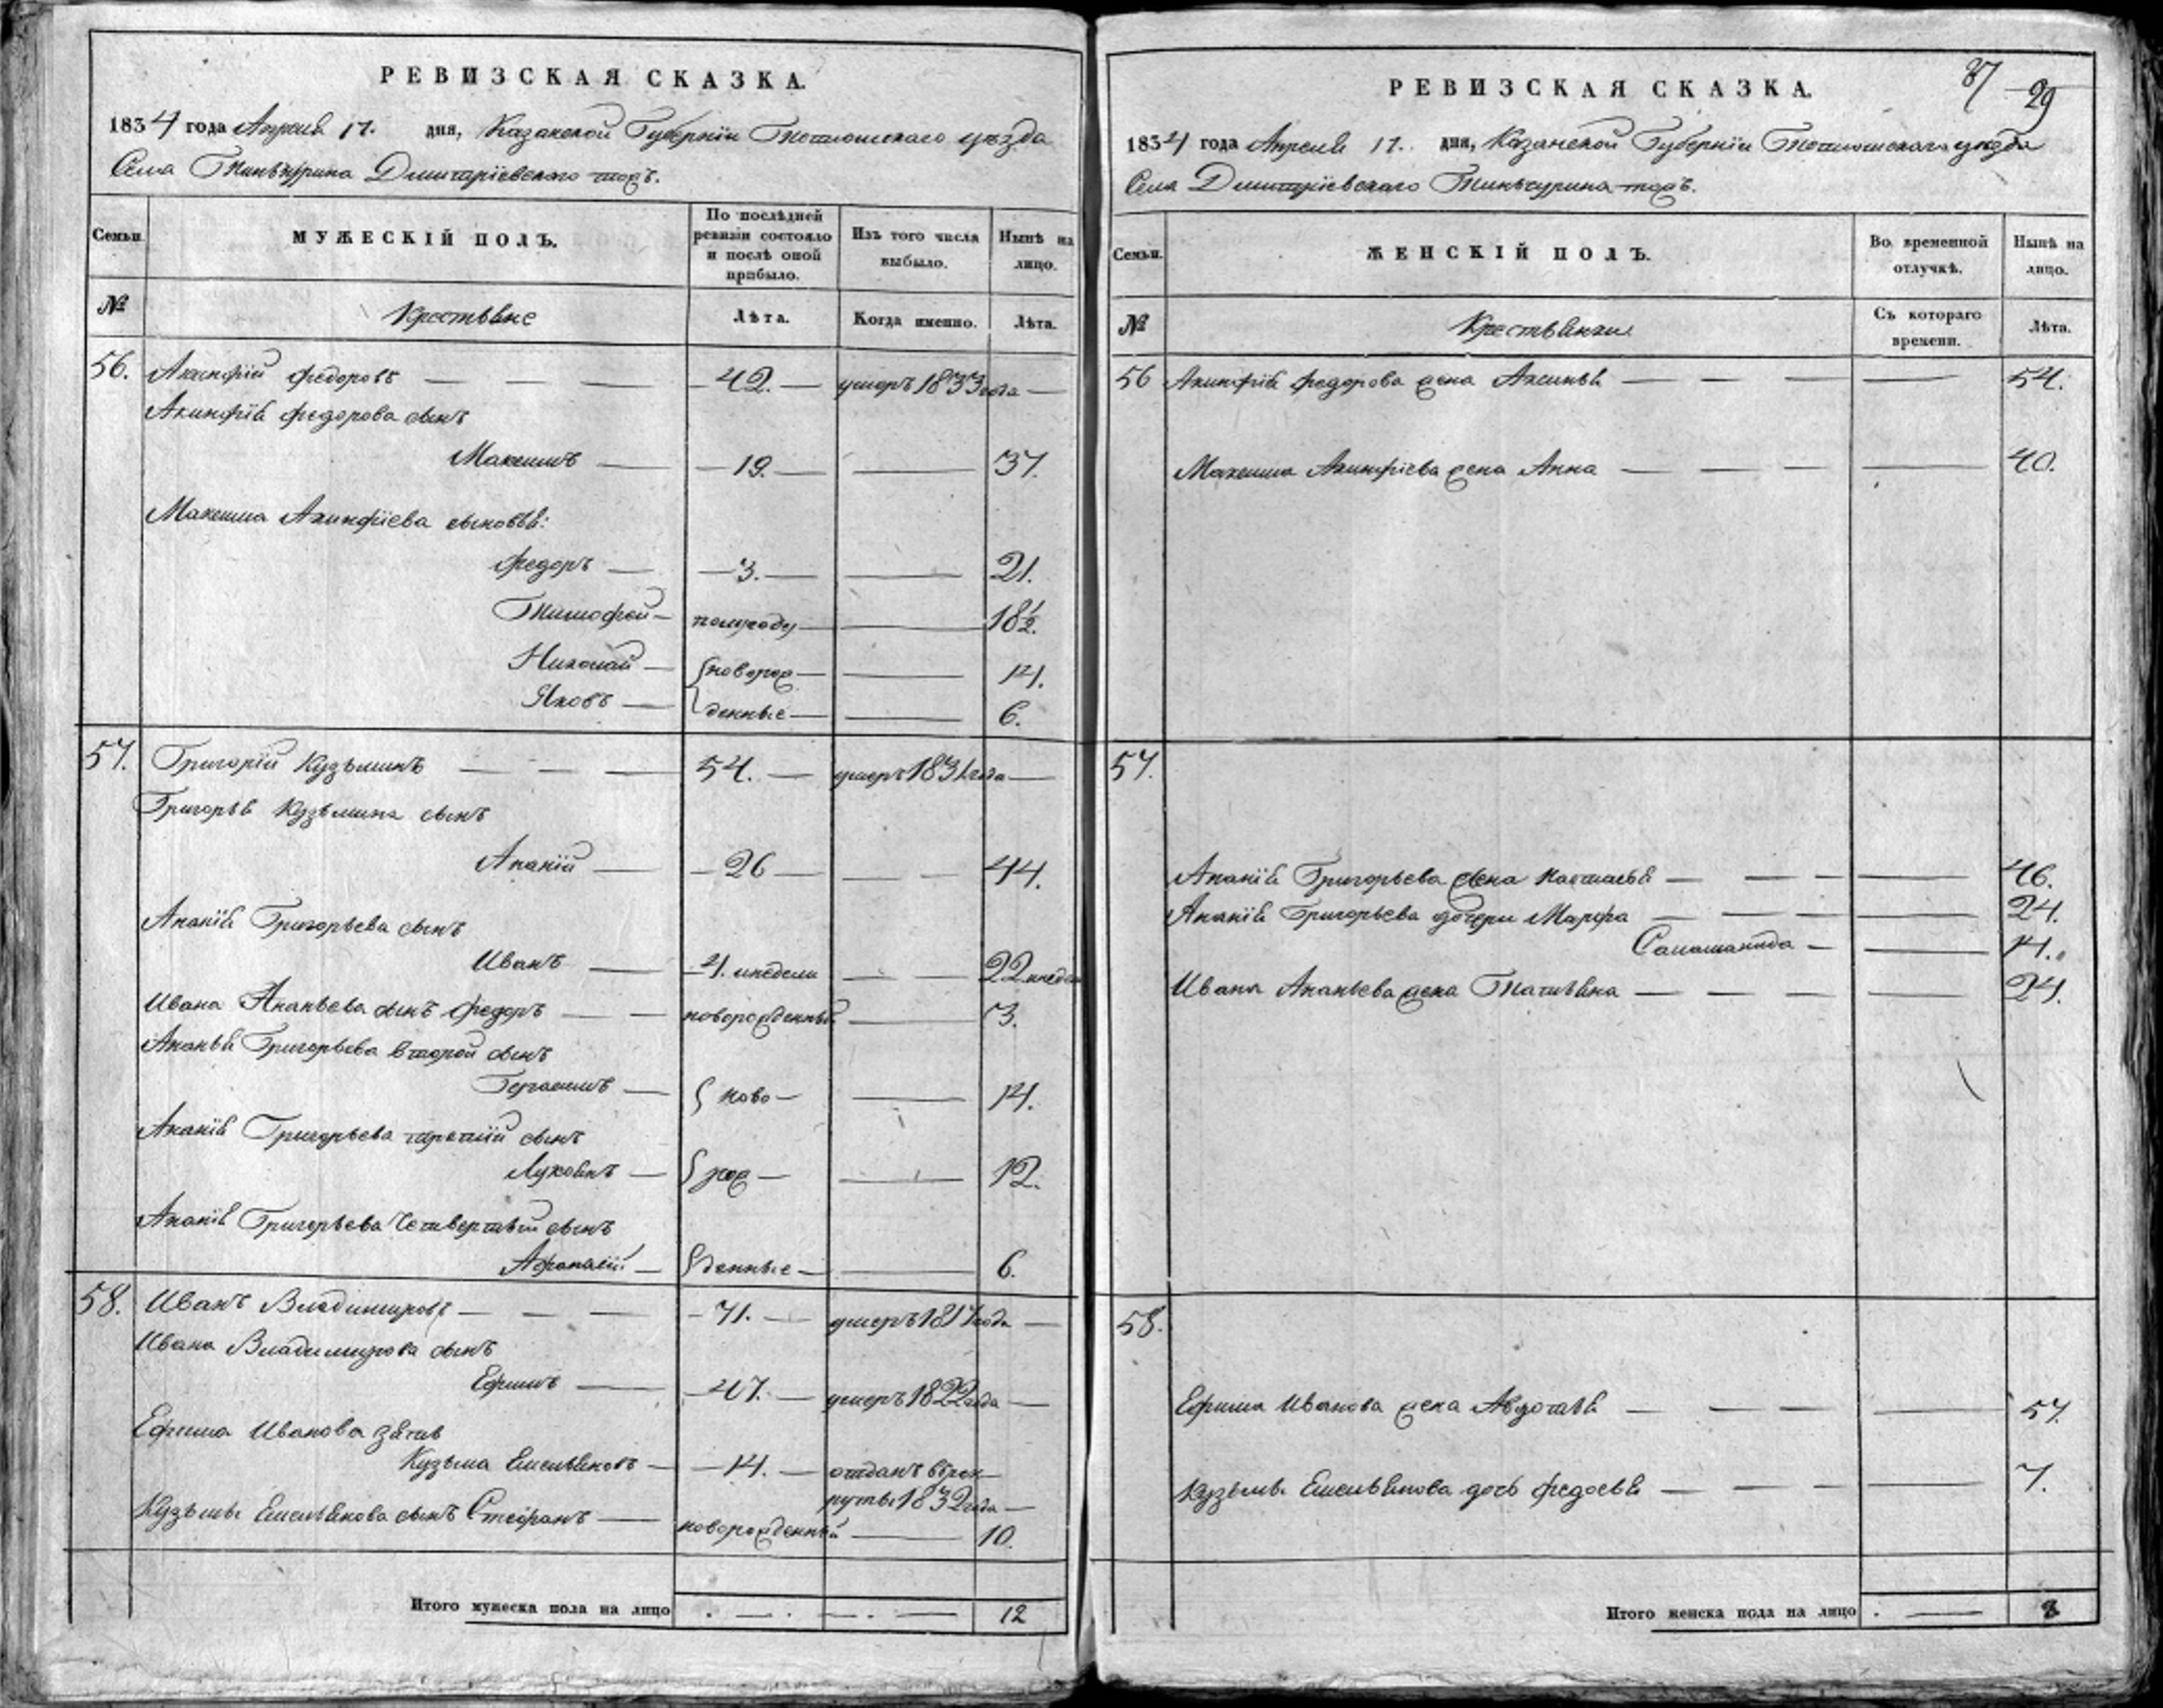 РЕВИЗСКАЯ СКАЗКА.
1834 года Апреля 17. дня, Казанской Губернiи Тетюшскаго уѣзда
Села Дмитрiевскаго тожъ.
Семьи.
МУЖЕСКIЙ ПОЛЪ.
По послѣдней ревизiи состояло и послѣ оной прибыло.
Изъ того числа выбыло.
Нынѣ на лицо.
№
Крестьяне
Лѣта.
Когда именно.
Лѣта.
56. Акинфiй Федоровъ — — — 42. — умеръ 1833 года —
Акинфiя Федорова сынъ
Максимъ — 19. — — 37.
Максима Акинфiева сыновья:
Федоръ — 3. — — 21.
Тимофей — полугоду — — 18 1/2.
Николай — новорож — — 14.
Яковъ — денные — — 6.
57. Григорiй Кузьминъ — — — 54. — умеръ 1831 года —
Григорья Кузьмина сынъ
Ананiй — 26 — — — 44.
Ананiя Григорьева сынъ
Иванъ — 4. недели — — 22 недел
Ивана Ананьева сынъ Федоръ — — новорожденный — 3.
Ананья Григорьева второй сынъ
Герасимъ — ново — — 14.
Ананiя Григорьева третiй сынъ
Лукоянъ — рож — — 12.
Ананiя Григорьева четвертый сынъ
Афанасiй — денные — — 6.
58. Иванъ Владимировъ — — — 71. — умеръ 1817 года —
Ивана Владимирова сынъ
Ефимъ — 47. — умеръ 1822 года —
Ефима Иванова зять
Кузьма Емельяновъ — 14. — отданъ врек
руты 1832 года —
Кузьмы Емельянова сынъ Стефанъ — новорожденный — 10.
Итого мужеска пола на лицо . — . — . — 12
87 29
РЕВИЗСКАЯ СКАЗКА.
1834 года Апреля 17. дня, Казанской Губернiи Тетюшскаго уѣзда
Села Дмитрiевскаго Тинчурина тожъ.
Семьи.
ЖЕНСКIЙ ПОЛЪ.
Во временной отлучкѣ.
Нынѣ на лицо.
№
Крестьянки
Съ котораго времени.
Лѣта.
56 Акинфiя Федорова жена Аксинья — — — — 54.
Максима Акинфiева жена Анна — — — — 40.
57.
Ананiя Григорьева жена Настасья — — — — 46.
Ананiя Григорьева дочери Марфа — — — — 24.
Саломанида — — 14.
Ивана Ананьева жена Татьяна — — — — 24.
58.
Ефима Иванова жена Авдотья — — — — 57.
Кузьмы Емельянова дочь Федосья — — — — 7.
Итого женска пола на лицо . — 8